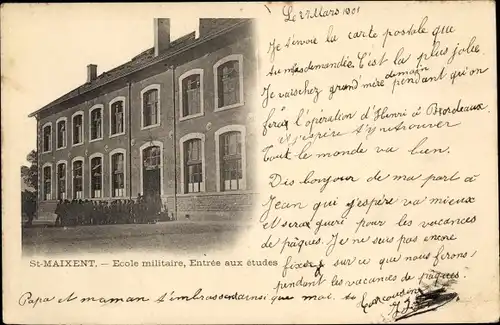 Le 27 Mars 1901
Je t'envoie la carte postale que
tu m'as demandée. C'est la plus jolie
Je vais chez grand'mère demain pendant qu'on
fera l'opération d'Henri à Bordeaux
j'espère t'y retrouver
Tout le monde va bien.
Dis bonjour de ma part à
Jean qui j'espère va mieux
et sera guéri pour les vacances
de pâques. Je ne suis pas encore
fixée sur ce que nous ferons
pendant les vacances de pâques.
ST-MAIXENT. — Ecole militaire, Entrée aux études
Papa et maman t'embrassent ainsi que moi. ta